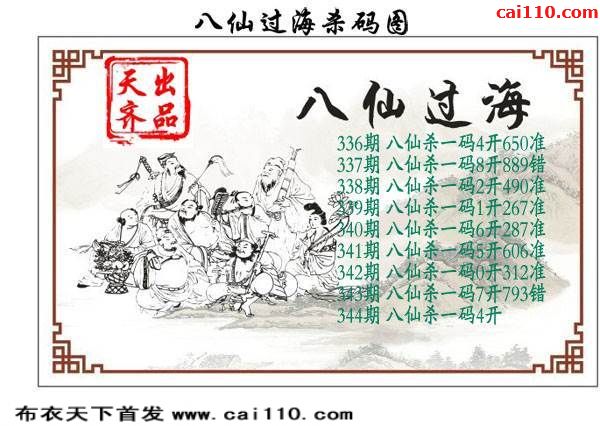 八仙过海杀码图
cai110.com
天齐出品
八仙过海
336期 八仙杀一码4开650准
337期 八仙杀一码8开889错
338期 八仙杀一码2开490准
339期 八仙杀一码1开267准
340期 八仙杀一码6开287准
341期 八仙杀一码5开606准
342期 八仙杀一码0开312准
343期 八仙杀一码7开793错
344期 八仙杀一码4开
布衣天下首发 www.cai110.com